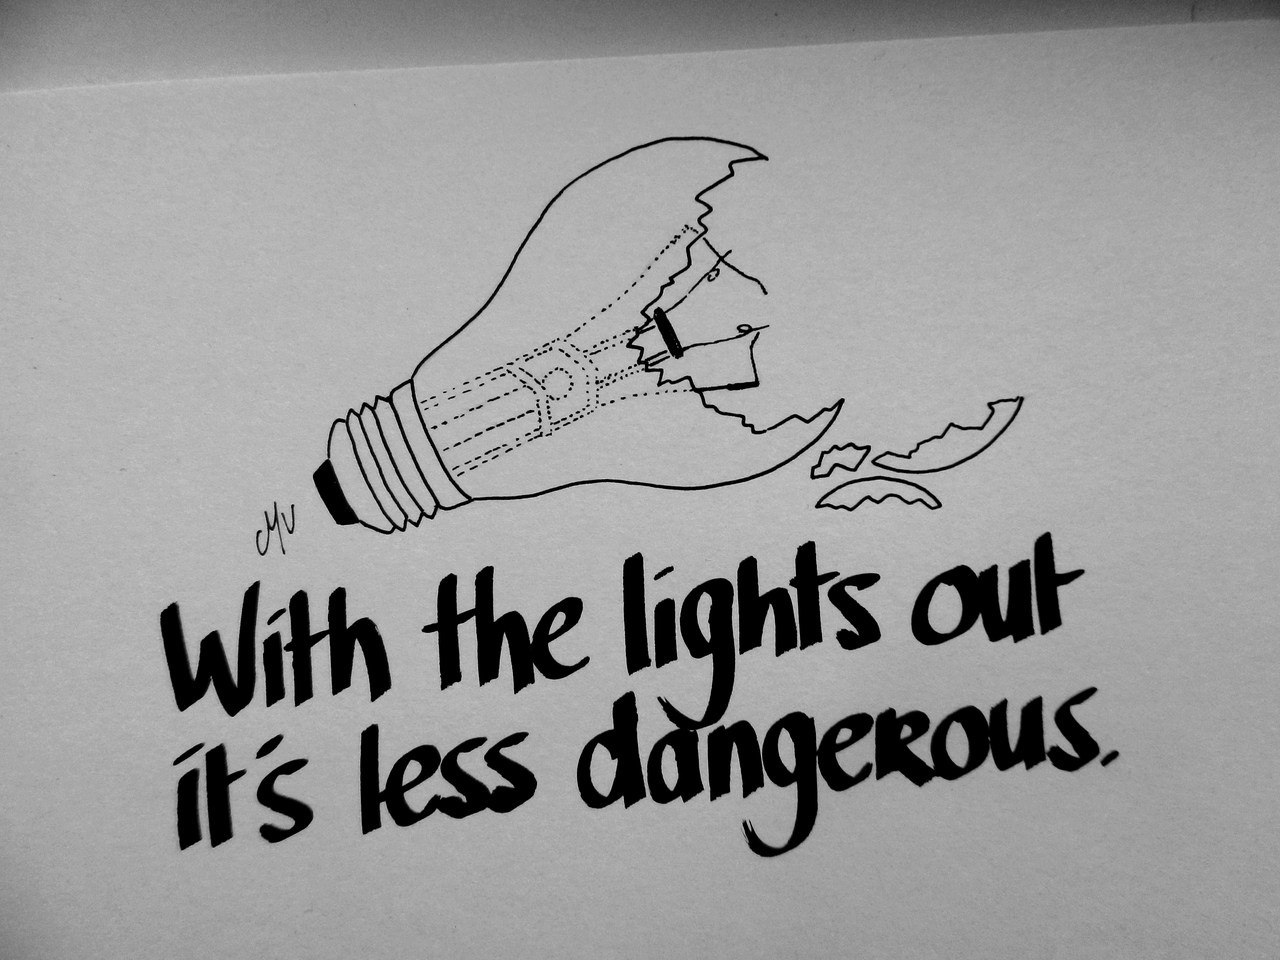 MV
With the lights out
it's less dangerous.